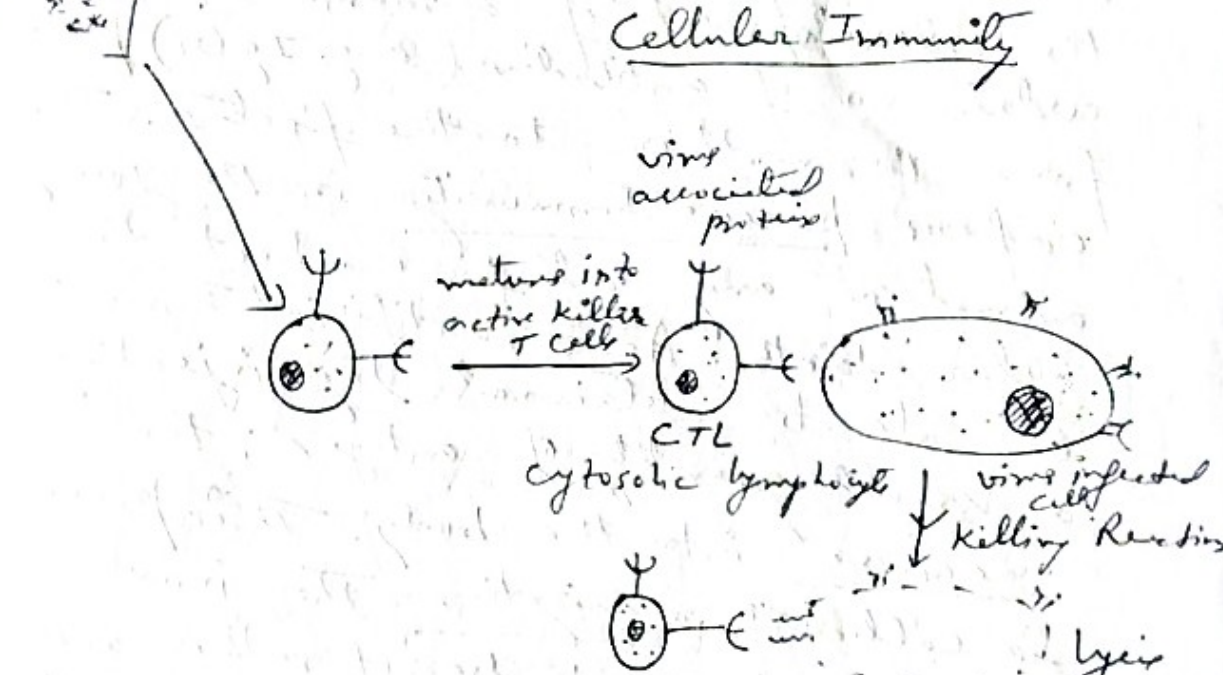 Cellular Immunity
virus
associated
protein
matures into
active killer
T Cells
CTL
Cytosolic lymphocyte
virus infected
cell
Killing Reaction
Lysis